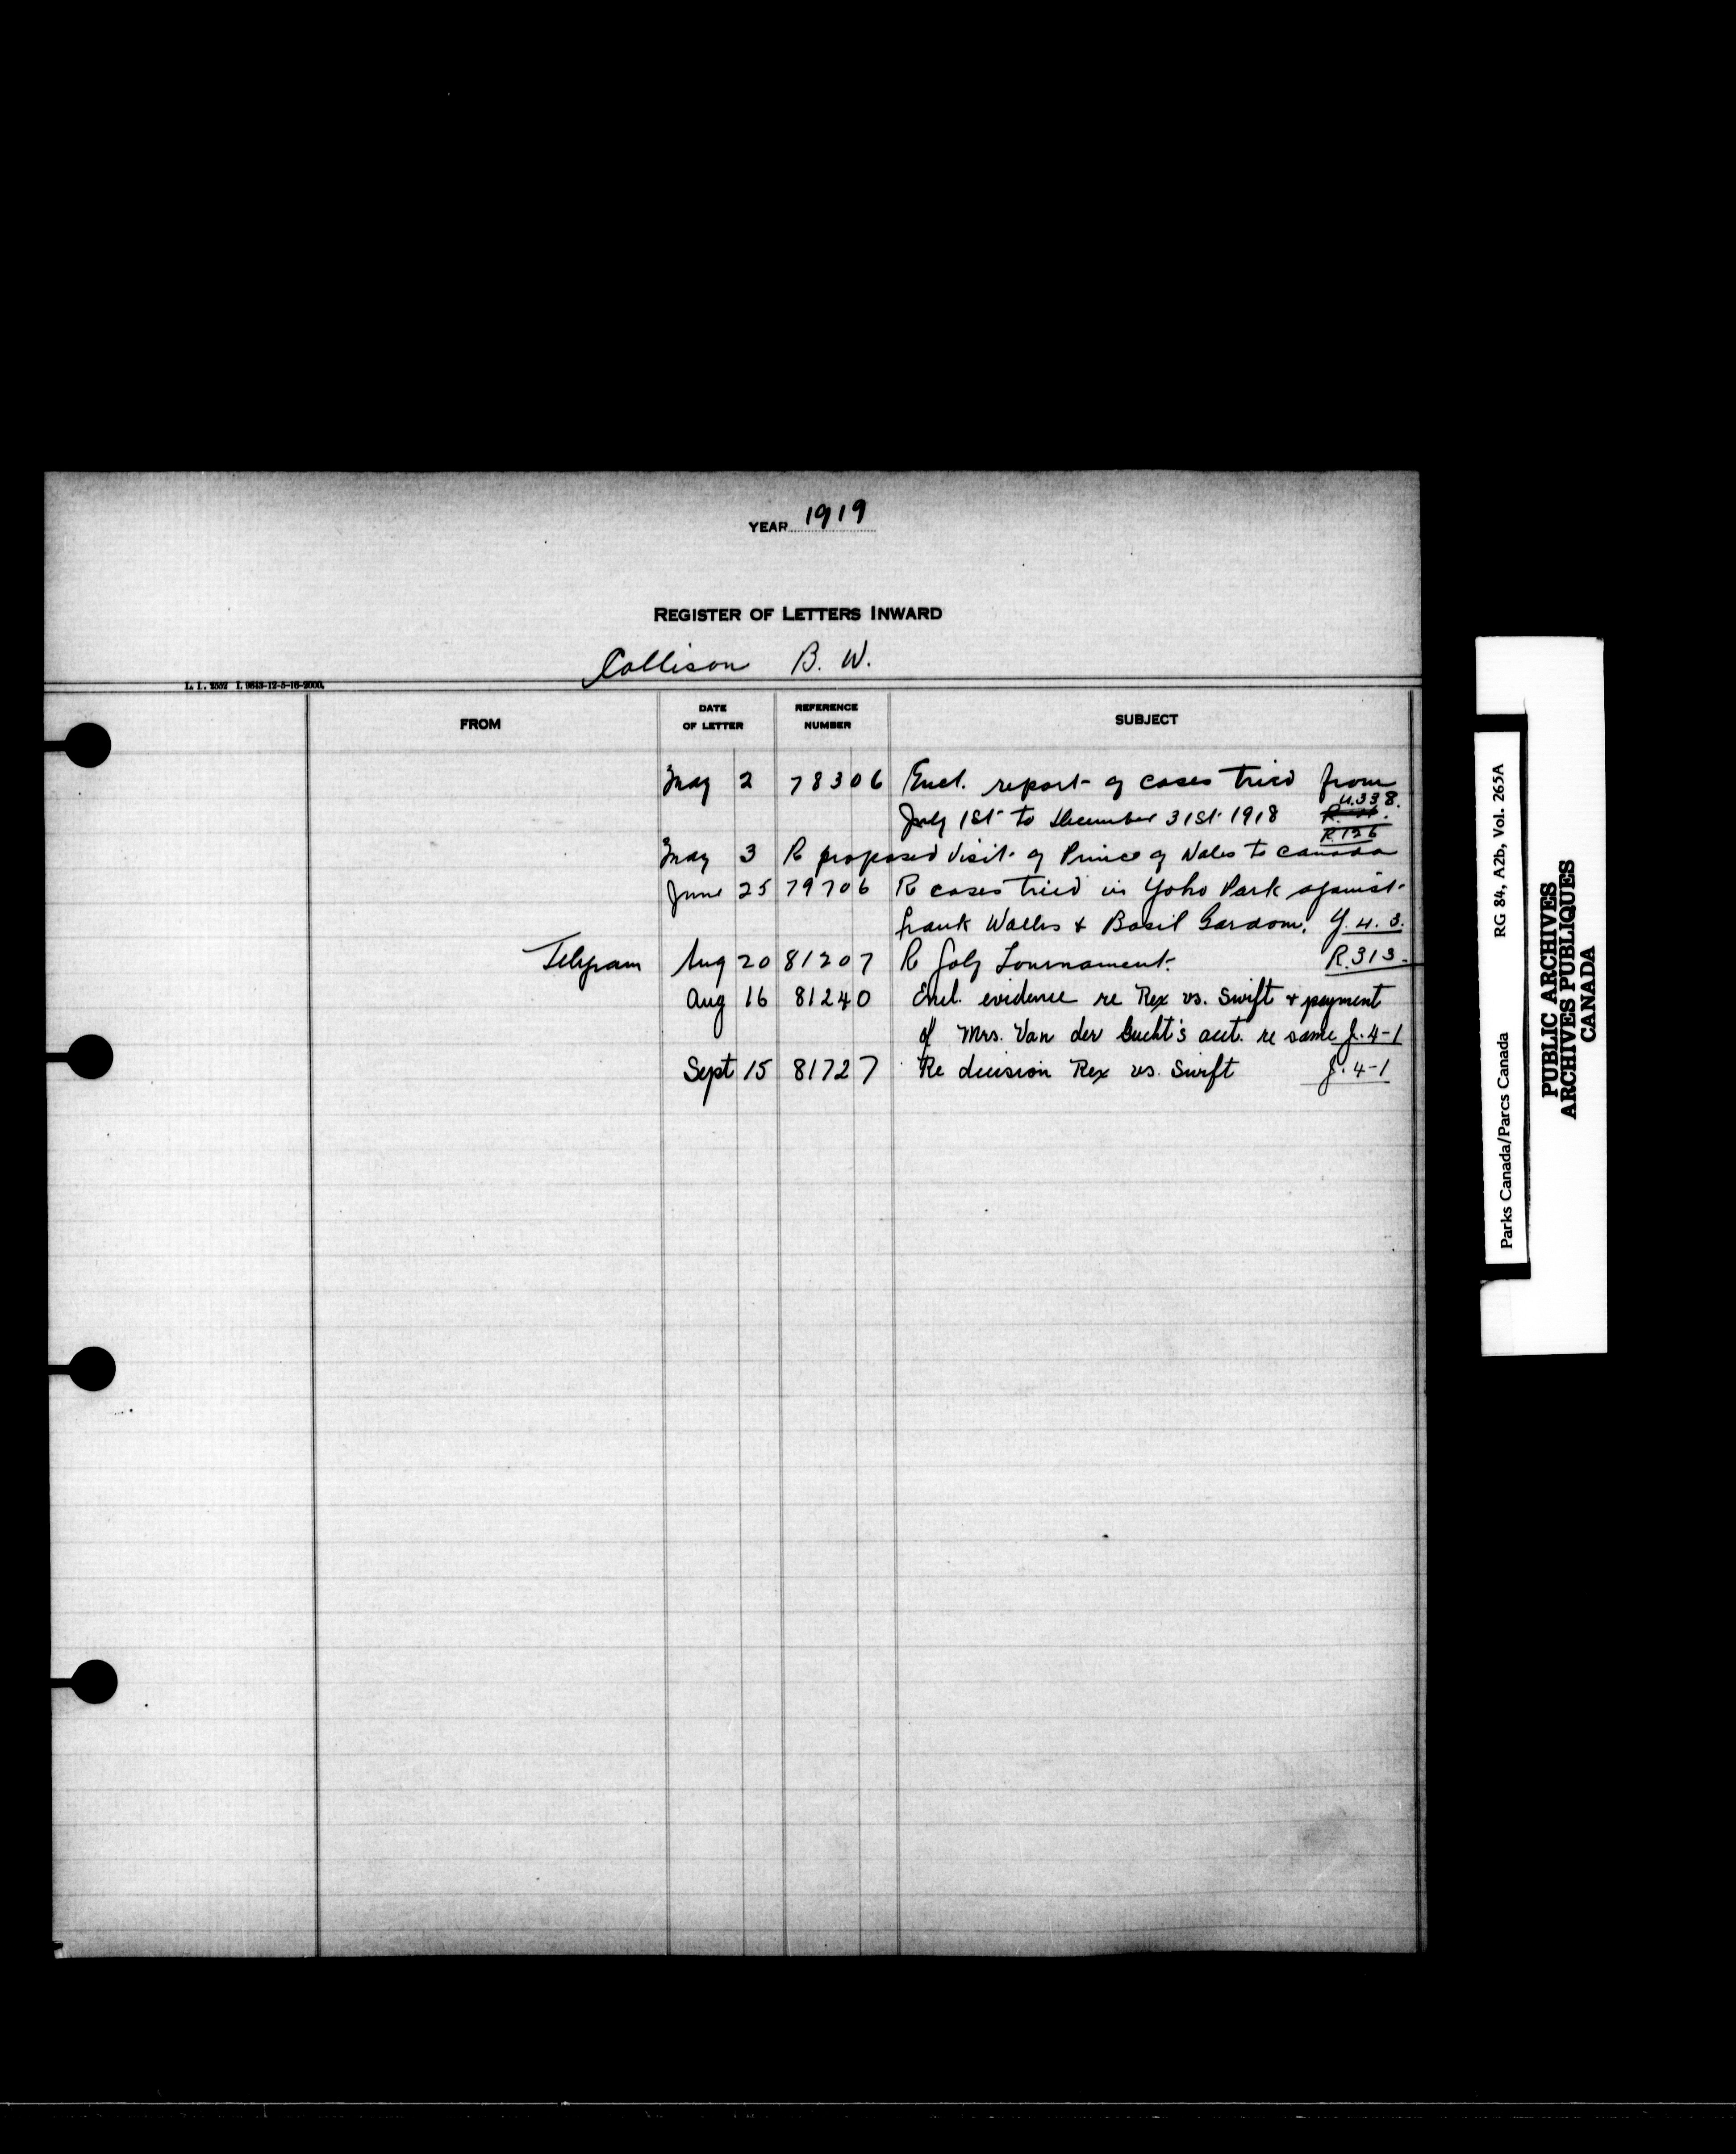 YEAR 1919
REGISTER OF LETTERS INWARD
Collison B. W.
L. I. 2552 I. 9643-12-5-16-2000.
FROM DATE OF LETTER REFERENCE NUMBER SUBJECT
May 2 78306 Encl. report of cases tried from
U.338.
July 1st to December 31st 1918
R.126
May 3 R proposed visit of Prince of Wales to Canada
June 25 79706 R cases tried in Yoho Park against
Frank Walles & Basil Gardom. Y.4.3.
Telegram Aug 20 81207 R Golf Tournament. R.313-
Aug 16 81240 Encl. evidence re Rex vs. Swift & payment
of Mrs. Van der Gucht's acct. re same J.4-1
Sept 15 81727 Re decision Rex vs. Swift J.4-1
Parks Canada/Parcs Canada RG 84, A2b, Vol. 265A
PUBLIC ARCHIVES
ARCHIVES PUBLIQUES
CANADA